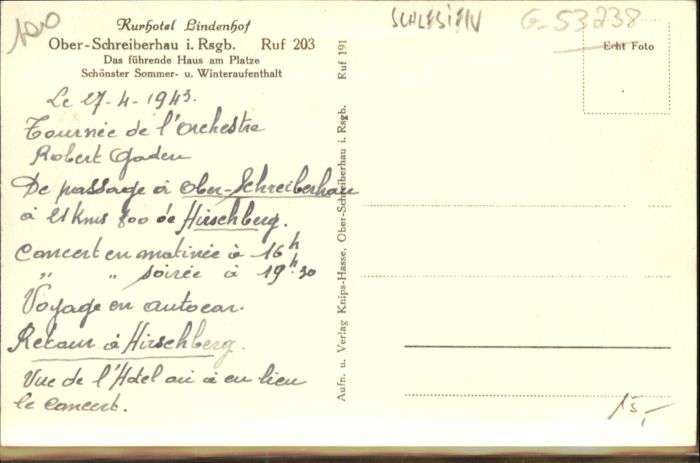 100
Kurhotel Lindenhof
Ober-Schreiberhau i. Rsgb. Ruf 203
Das führende Haus am Platze
Schönster Sommer- u. Winteraufenthalt
SCHLESIEN
G-53238
Echt Foto
Le 27-4-1943.
Tournée de l'Orchestre
Robert Gaden
De passage à Ober-Schreiberhau
à 21 kms 800 de Hirschberg.
Concert en matinée à 16h
" " soirée à 19h30
Voyage en autocar.
Retour à Hirschberg.
Vue de l'Hotel où à eu lieu
le concert.
Aufn. u. Verlag Knips-Hasse, Ober-Schreiberhau i. Rsgb. Ruf 191
15,-